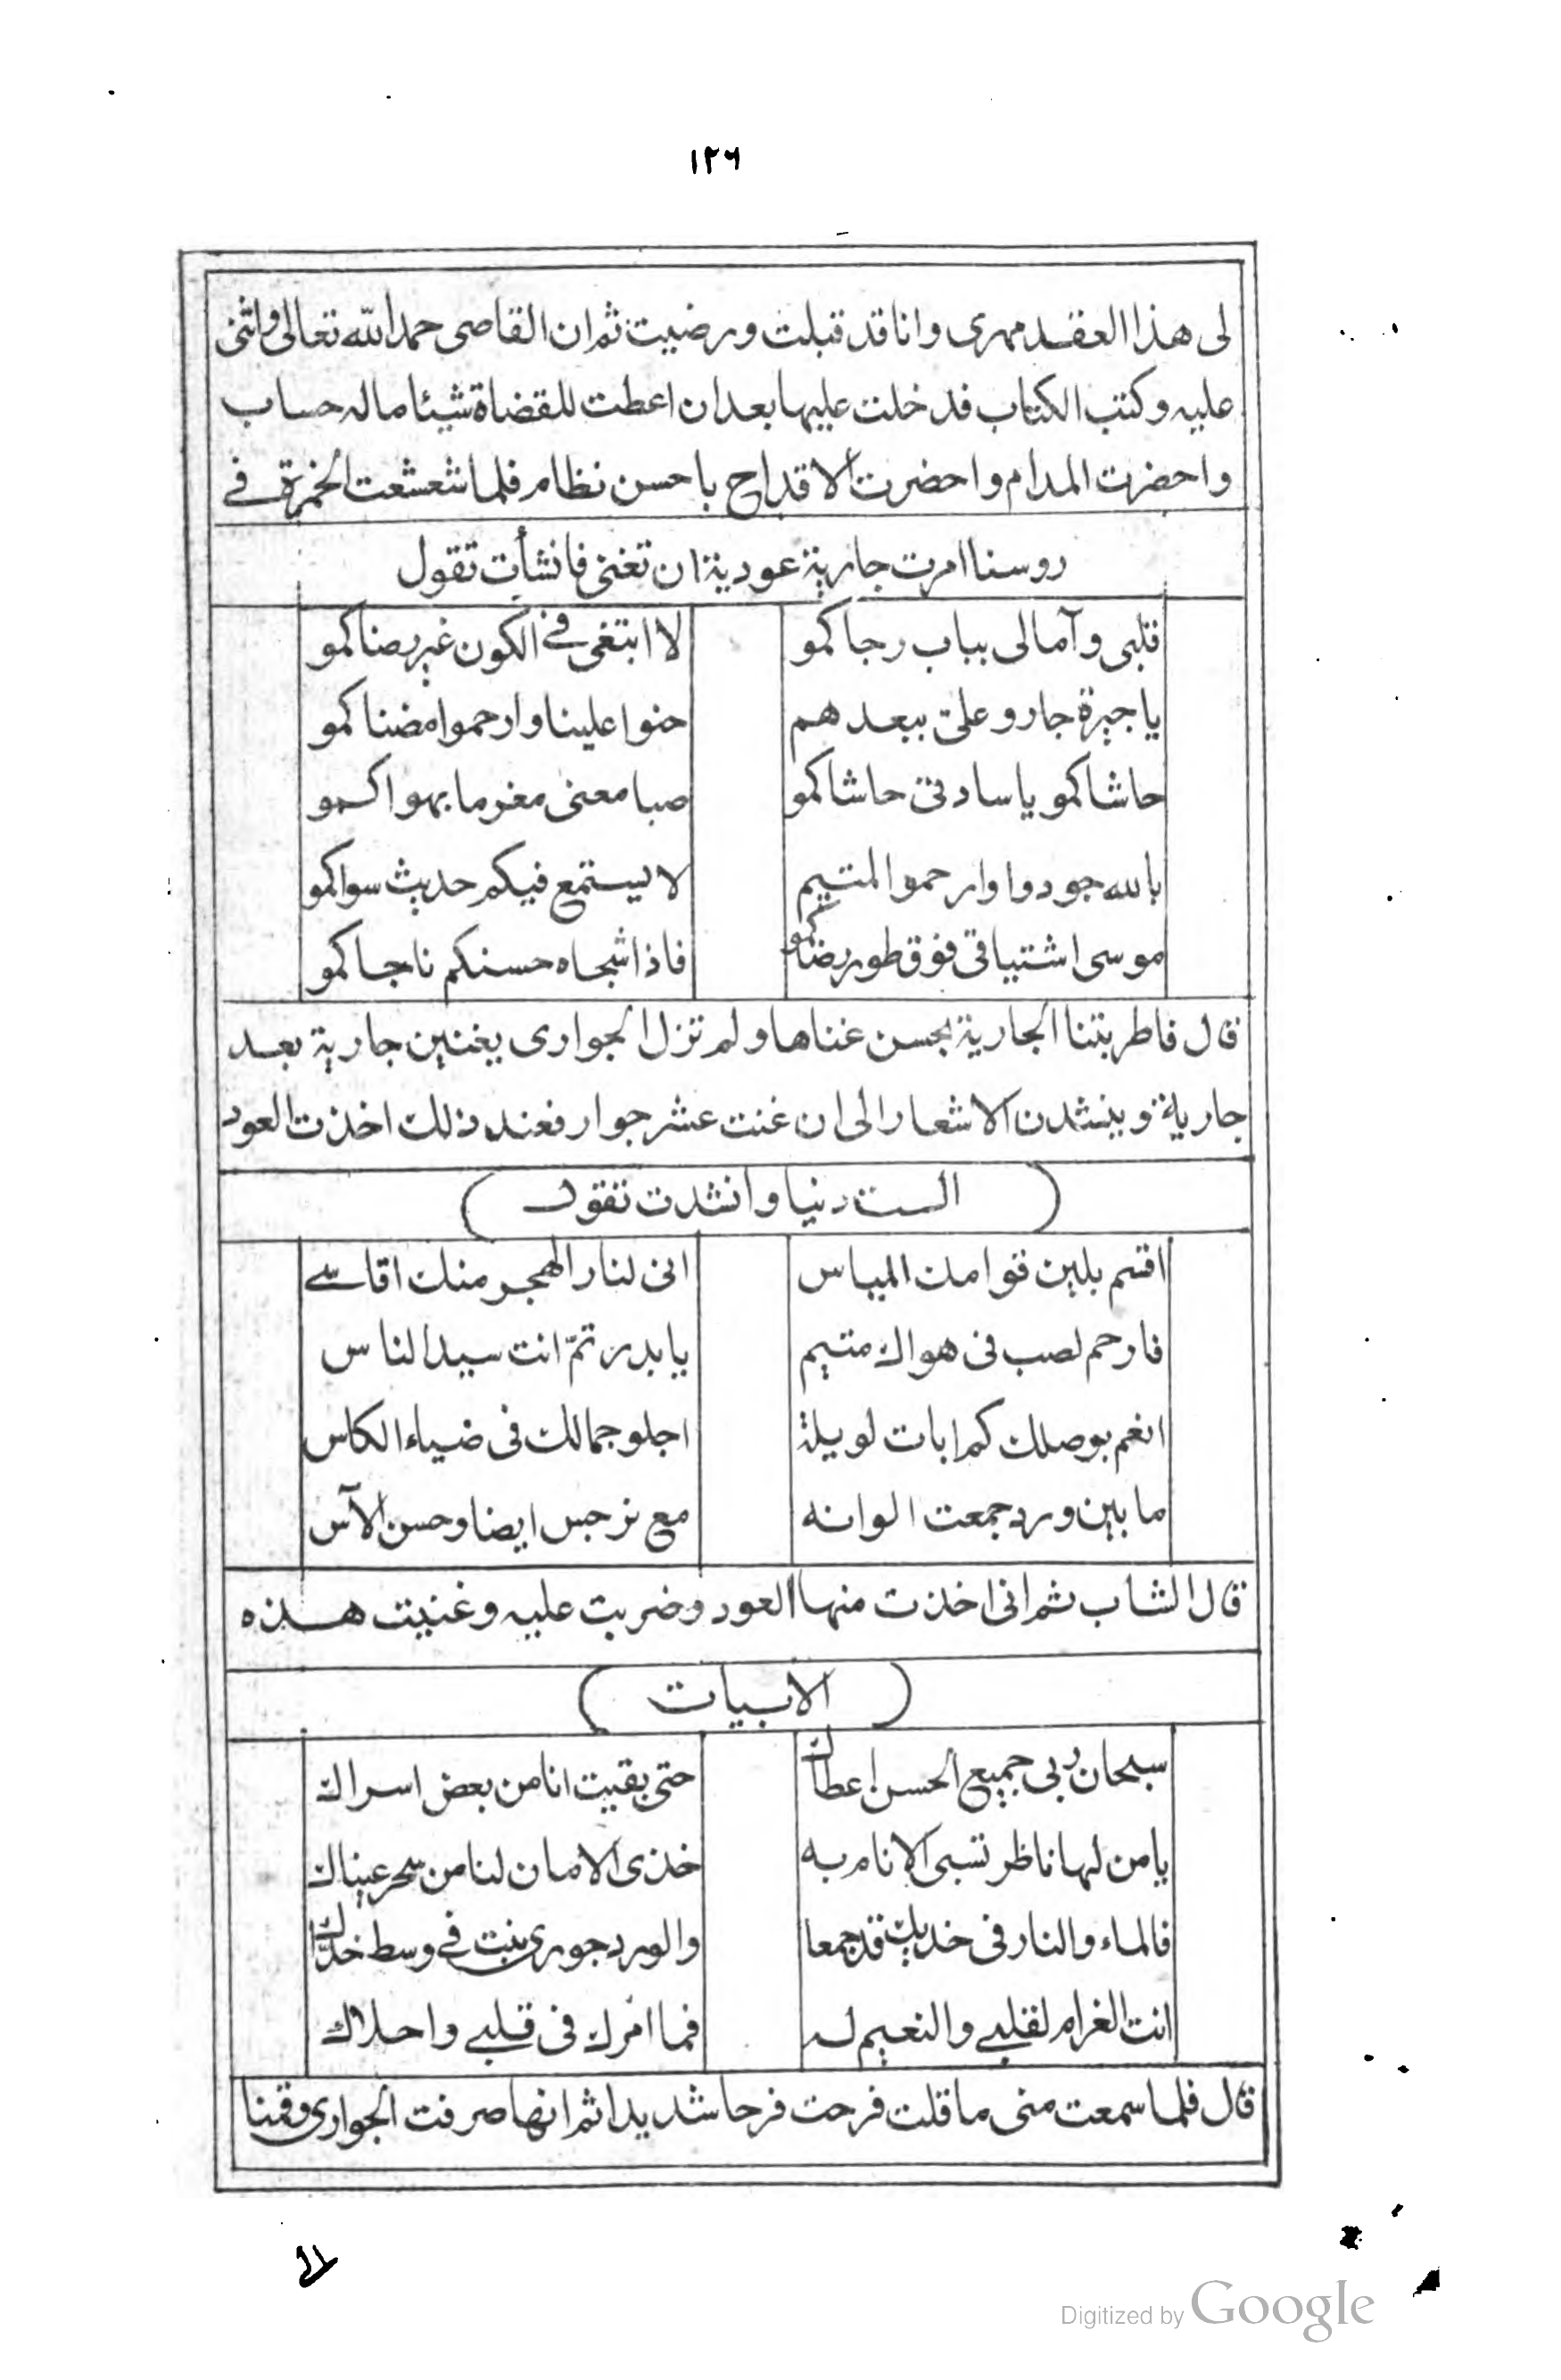 ١٢٦
لى هذا العقد مهرى وانا قد قبلت ورضيت ثم ان القاضى حمد الله تعالى واثنى
عليه وكتب الكتاب فدخلت عليها بعد ان اعطت للقضاة شيئا ماله حساب
واحضرت المدام واحضرت الاقداح باحسن نظام فلما شعشعت الخمرة فى
روسنا امرت جارية عودية ان تغنى فانشأت تقول
قلبى وآمالى بباب رجاكمو لا ابتغى فى الكون غير رضاكمو
يا جيرة جاروعلىّ ببعدهم حنوا علينا وارحموا مضناكمو
حاشاكمو يا سادتى حاشاكمو صبا معنى مغرما بهواكمو
بالله جودوا وارحموا المتيم لا يستمع فيكم حديث سواكمو
موسى اشتياقى فوق طور رضاكمو فاذا شجاه حسنكم ناجاكمو
قال فاطربتنا الجارية بحسن غناها ولم تزل الجوارى يغنين جارية بعد
جارية وينشدن الاشعار الى ان غنت عشر جوار فعند ذلك اخذت العود
(الست دنيا وانشدت تقول)
اقسم بلين قوامك المياس انى لنار الهجر منك اقاسى
فارحم لصب فى هواك متيم يا بدر تمّ انت سيد الناس
انعم بوصلك كم ابات لويلة اجلو جمالك فى ضياء الكاس
ما بين ورد جمعت الوانه مع نرجس ايضا وحسن الآس
قال الشاب ثم انى اخذت منها العود وضربت عليه وغنيت هذه
(الابيات)
سبحان ربى جميع الحسن اعطاك حتى بقيت انا من بعض اسراك
يا من لها ناظر تسبى الانام به خذى الامان لنا من سحر عيناك
فالماء والنار فى خديك قد جمعا والورد جورى نبت فى وسط خداك
انت الغرام لقلبى والنعيم له فما امرك فى قلبى واحلاك
قال فلما سمعت منى ما قلت فرحت فرحا شديدا ثم انها صرفت الجوارى وقمنا
الى
Digitized by Google